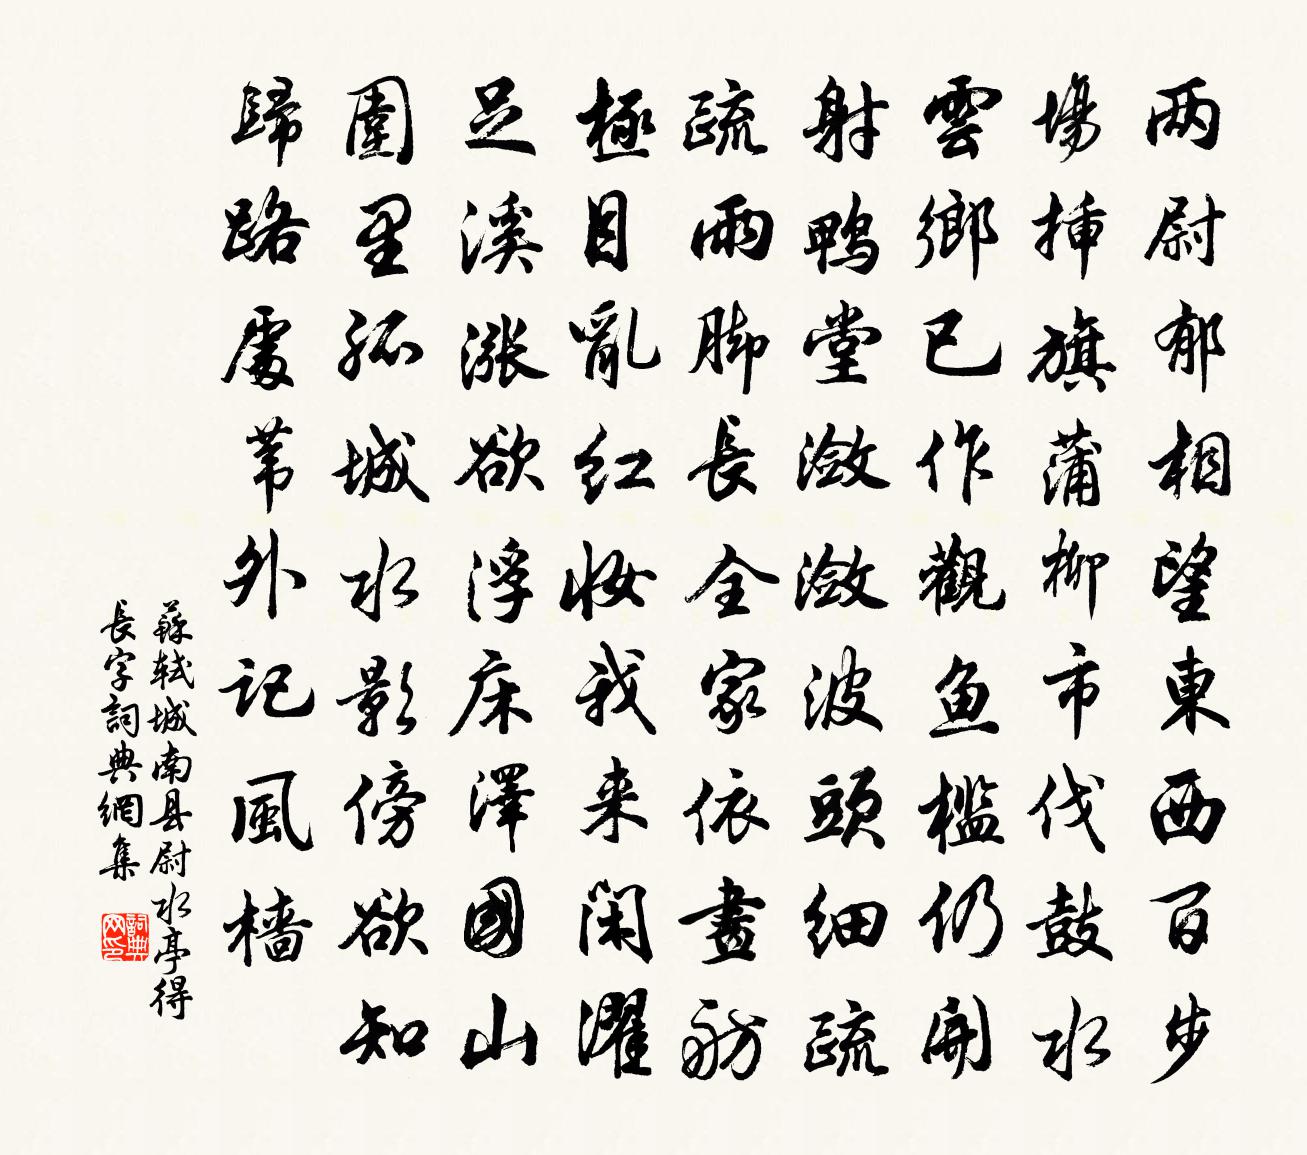 两尉郁相望東西百步
場挿旗蒲柳市伐鼓水
雲鄉已作觀魚檻仍開
射鴨堂潋潋波頭細疏
疏雨脚長全家依畫舫
極目亂红妝我来閑濯
足溪漲欲浮床澤國山
圍里孤城水影傍欲知
歸路處葦外記風檣
蘇轼城南县尉水亭得
長字詞典網集